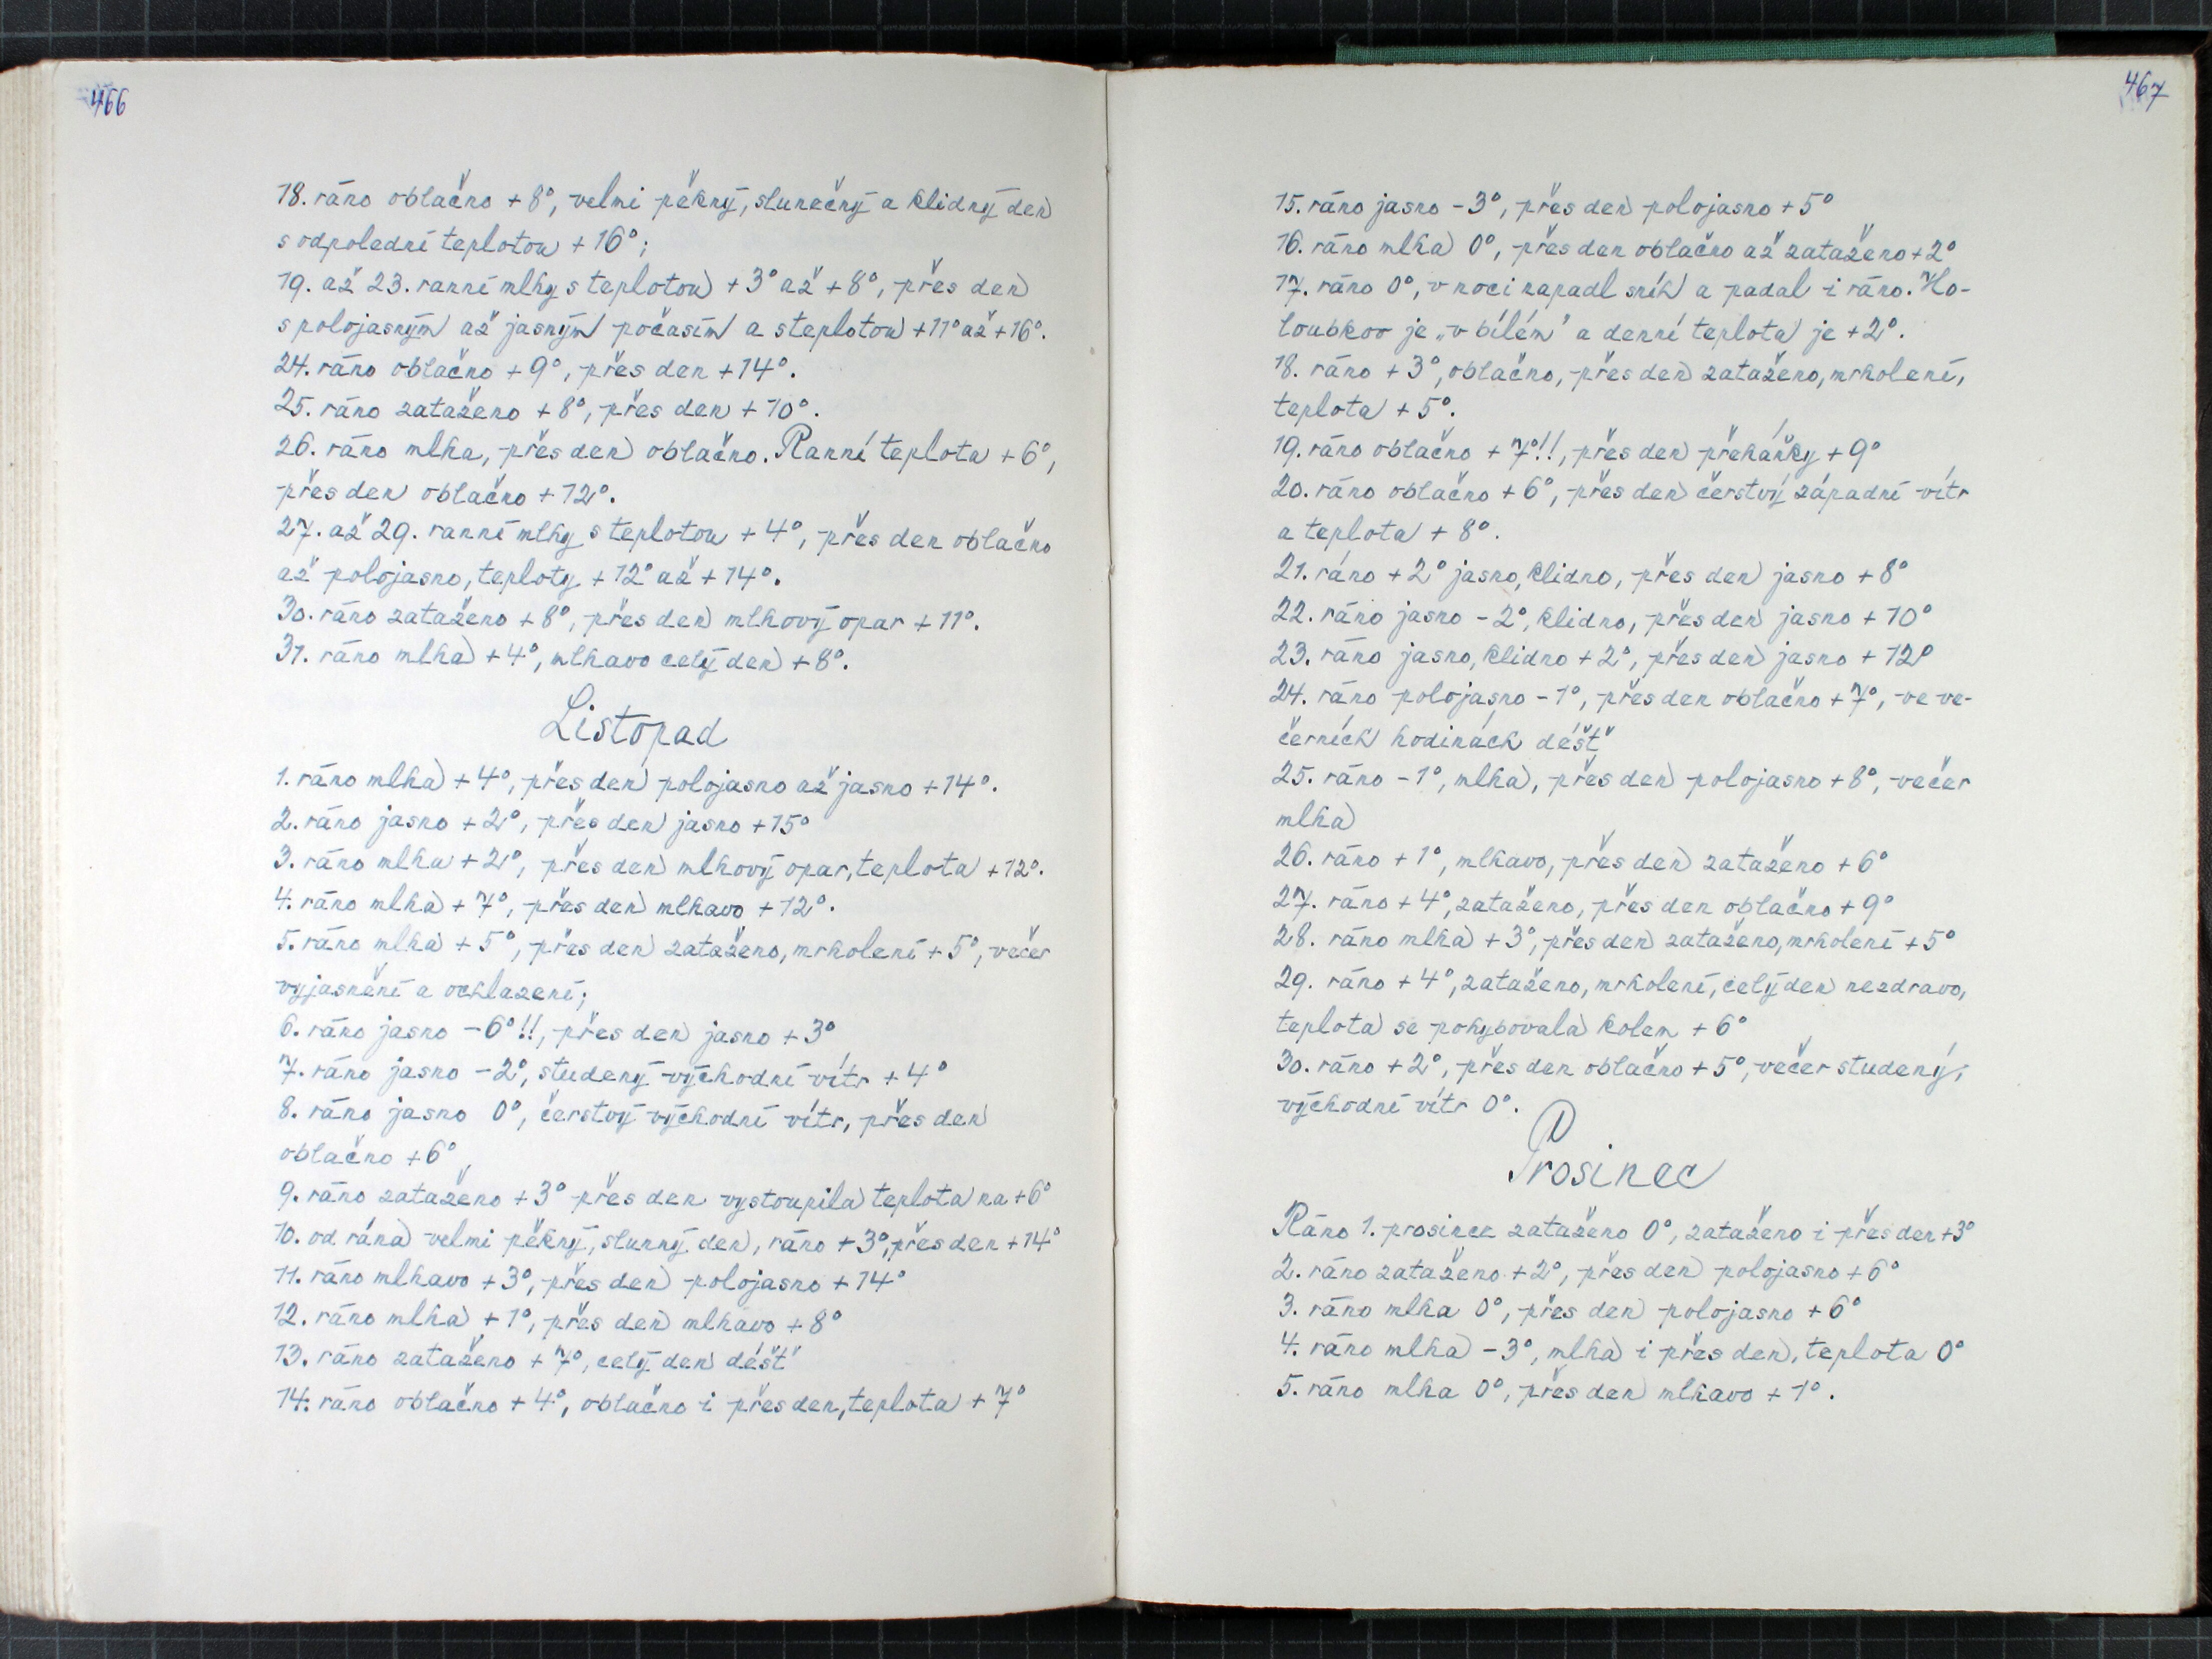 466
18. ráno oblačno +8°, velmi pěkný, slunečný a klidný den
s odpolední teplotou +16°;
19. až 23. ranní mlhy s teplotou +3° až +8°, přes den
s polojasným až jasným počasím a s teplotou +11° až +16°.
24. ráno oblačno +9°, přes den +14°.
25. ráno zataženo +8°, přes den +10°.
26. ráno mlha, přes den oblačno. Ranní teplota +6°,
přes den oblačno +12°.
27. až 29. ranní mlhy s teplotou +4°, přes den oblačno
až polojasno, teploty +12° až +14°.
30. ráno zataženo +8°, přes den mlhový opar +11°.
31. ráno mlha +4°, mlhavo celý den +8°.
Listopad
1. ráno mlha +4°, přes den polojasno až jasno +14°.
2. ráno jasno +2°, přes den jasno +15°
3. ráno mlha +2°, přes den mlhový opar, teplota +12°.
4. ráno mlha +7°, přes den mlhavo +12°.
5. ráno mlha +5°, přes den zataženo, mrholení +5°, večer
vyjasnění a ochlazení;
6. ráno jasno -6°!!, přes den jasno +3°
7. ráno jasno -2°, studený východní vítr +4°
8. ráno jasno 0°, čerstvý východní vítr, přes den
oblačno +6°,
9. ráno zataženo +3° přes den vystoupila teplota na +6°
10. od rána velmi pěkný, slunný den, ráno +3°, přes den +14°
11. ráno mlhavo +3°, přes den polojasno +14°
12. ráno mlha +1°, přes den mlhavo +8°
13. ráno zataženo +7°, celý den déšť
14. ráno oblačno +4°, oblačno i přes den, teplota +7°
467
15. ráno jasno -3°, přes den polojasno +5°
16. ráno mlha 0°, přes den oblačno až zataženo +2°
17. ráno 0°, v noci napadl sníh a padal i ráno. Ho-
loubkov je „v bílém" a denní teplota je +2°.
18. ráno +3°, oblačno, přes den zataženo, mrholení,
teplota +5°.
19. ráno oblačno +7°!!, přes den přeháňky +9°
20. ráno oblačno +6°, přes den čerstvý západní vítr
a teplota +8°.
21. ráno +2° jasno, klidno, přes den jasno +8°
22. ráno jasno -2°, klidno, přes den jasno +10°
23. ráno jasno, klidno +2°, přes den jasno +12°
24. ráno polojasno -1°, přes den oblačno +7°, ve ve-
černích hodinách déšť
25. ráno -1°, mlha, přes den polojasno +8°, večer
mlha
26. ráno +1°, mlhavo, přes den zataženo +6°
27. ráno +4°, zataženo, přes den oblačno +9°
28. ráno mlha +3°, přes den zataženo, mrholení +5°
29. ráno +4°, zataženo, mrholení, celý den nezdravo,
teplota se pohybovala kolem +6°
30. ráno +2°, přes den oblačno +5°, večer studený,
východní vítr 0°.
Prosinec
Ráno 1. prosince zataženo 0°, zataženo i přes den +3°
2. ráno zataženo +2°, přes den polojasno +6°
3. ráno mlha 0°, přes den polojasno +6°
4. ráno mlha -3°, mlha i přes den, teplota 0°
5. ráno mlha 0°, přes den mlhavo +1°.